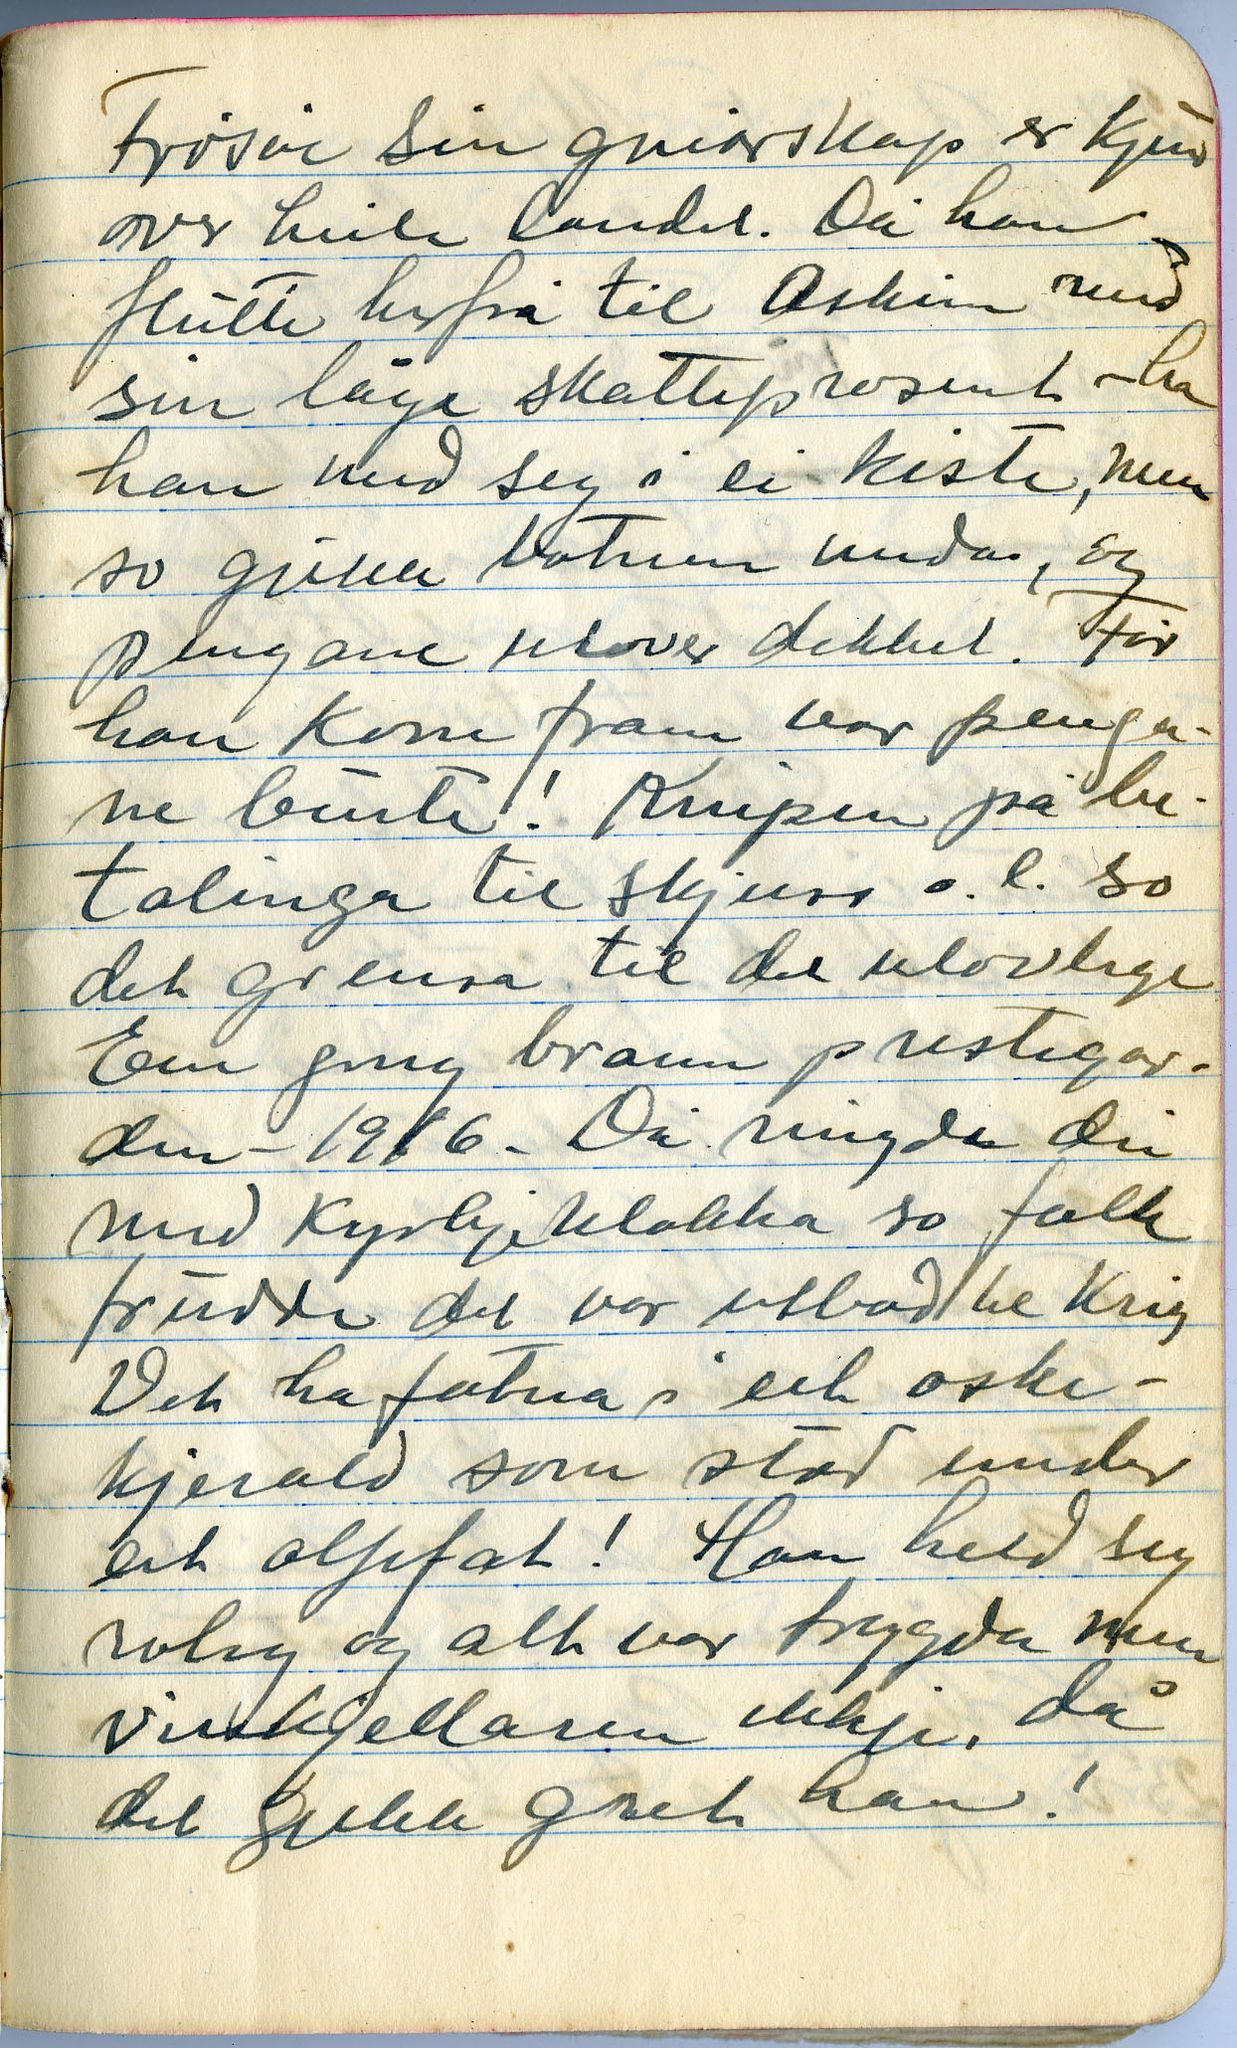 Frøsøe sin gniarskap er kjend
over heile landet. Då han
flutte herfrå til Askim med
sin låge skatteprosent - ha
han med seg i ei kiste, men
so gjekk botnen undar, og
pengane utover dekket. Før
han kom fram var penga-
ne burte! Knipen på be-
talinga til skjuss o.l. so
det grensa til det ulovlege
Ein gong brann prestegar-
den - 1916 - Då ringde dei
med kyrkjeklokka so folk
trudde det var utbrodt krig
Det ha fatna i eit oske-
kjerald som stod under
eit oljefat! Han held seg
roleg og alt var trygda men
vinkjellaren ikkje, då
det gjekk gret han!